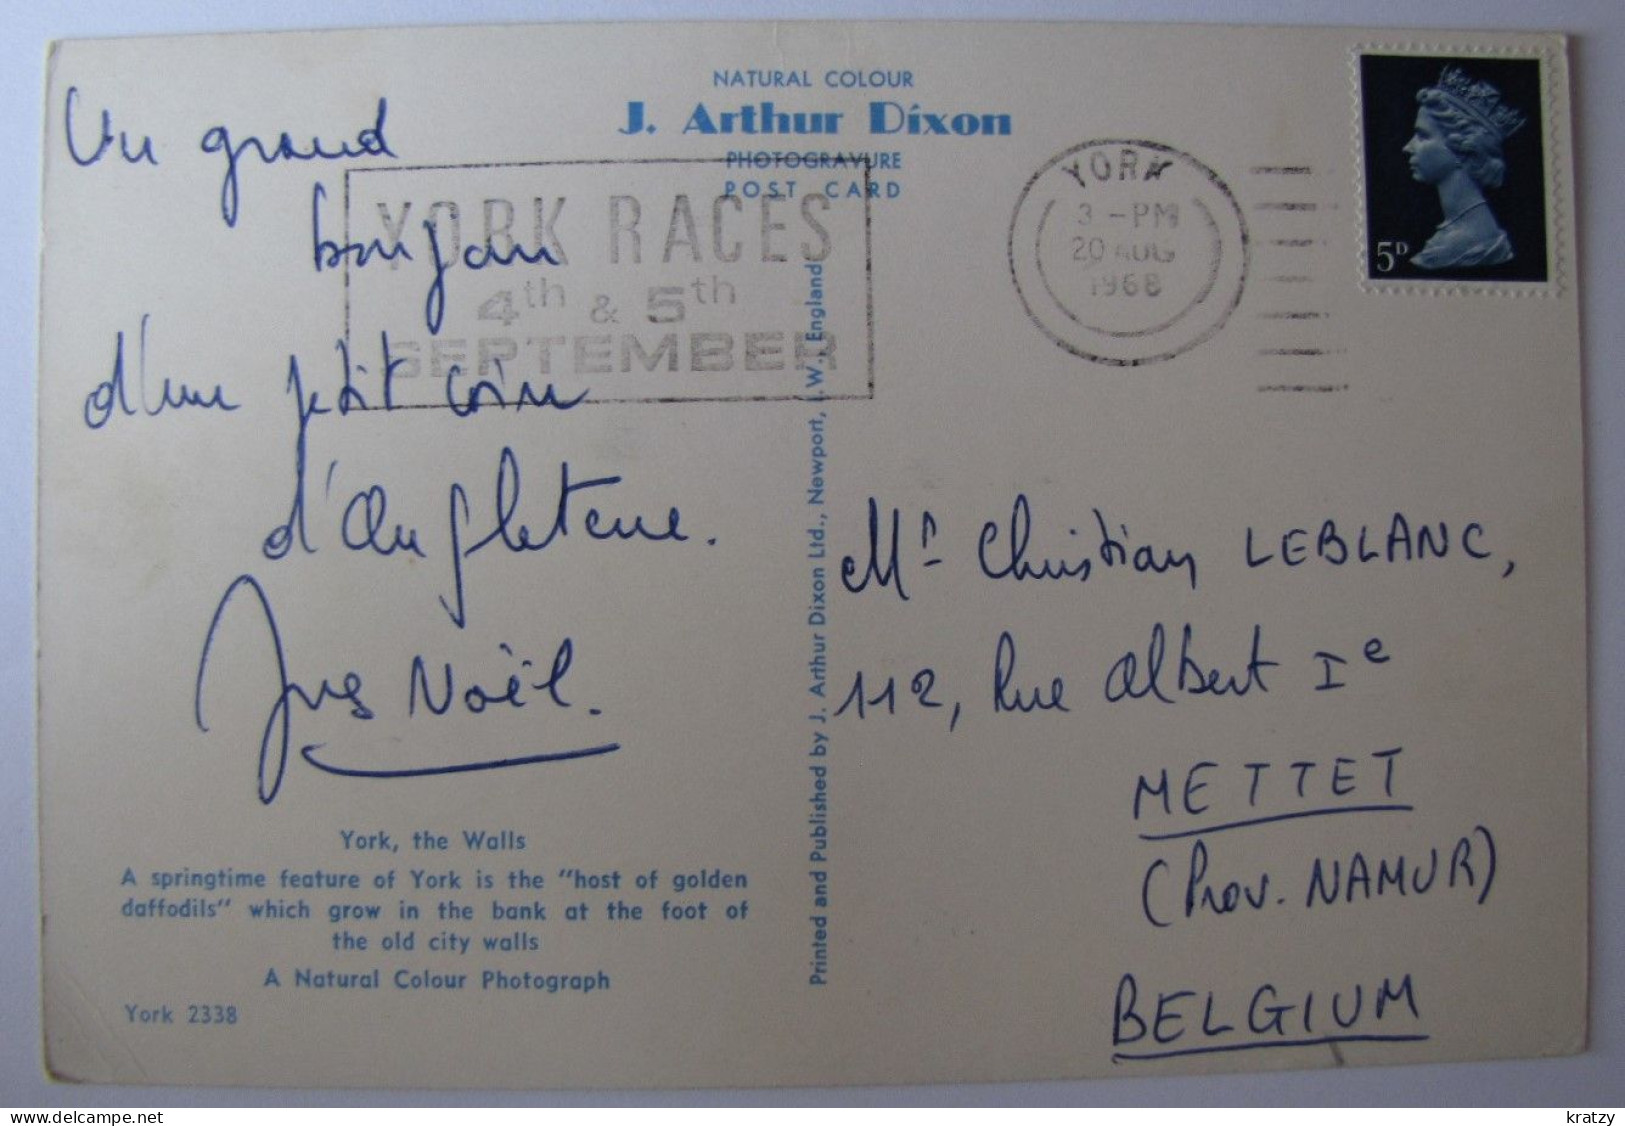 NATURAL COLOUR
J. Arthur Dixon
PHOTOGRAVURE
POST CARD
YORK RACES
4th & 5th
SEPTEMBER
YORK
3 - PM
20 AUG
1968
5D
Un grand
bonjour
d'un petit coin
d'Angleterre.
Yves Noël.
York, the Walls
A springtime feature of York is the "host of golden
daffodils" which grow in the bank at the foot of
the old city walls
A Natural Colour Photograph
York 2338
Printed and Published by J. Arthur Dixon Ltd., Newport, I.W., England
Mr Christian LEBLANC,
112, Rue Albert Ie
METTET
(Prov. NAMUR)
BELGIUM
www.delcampe.net
kratzy